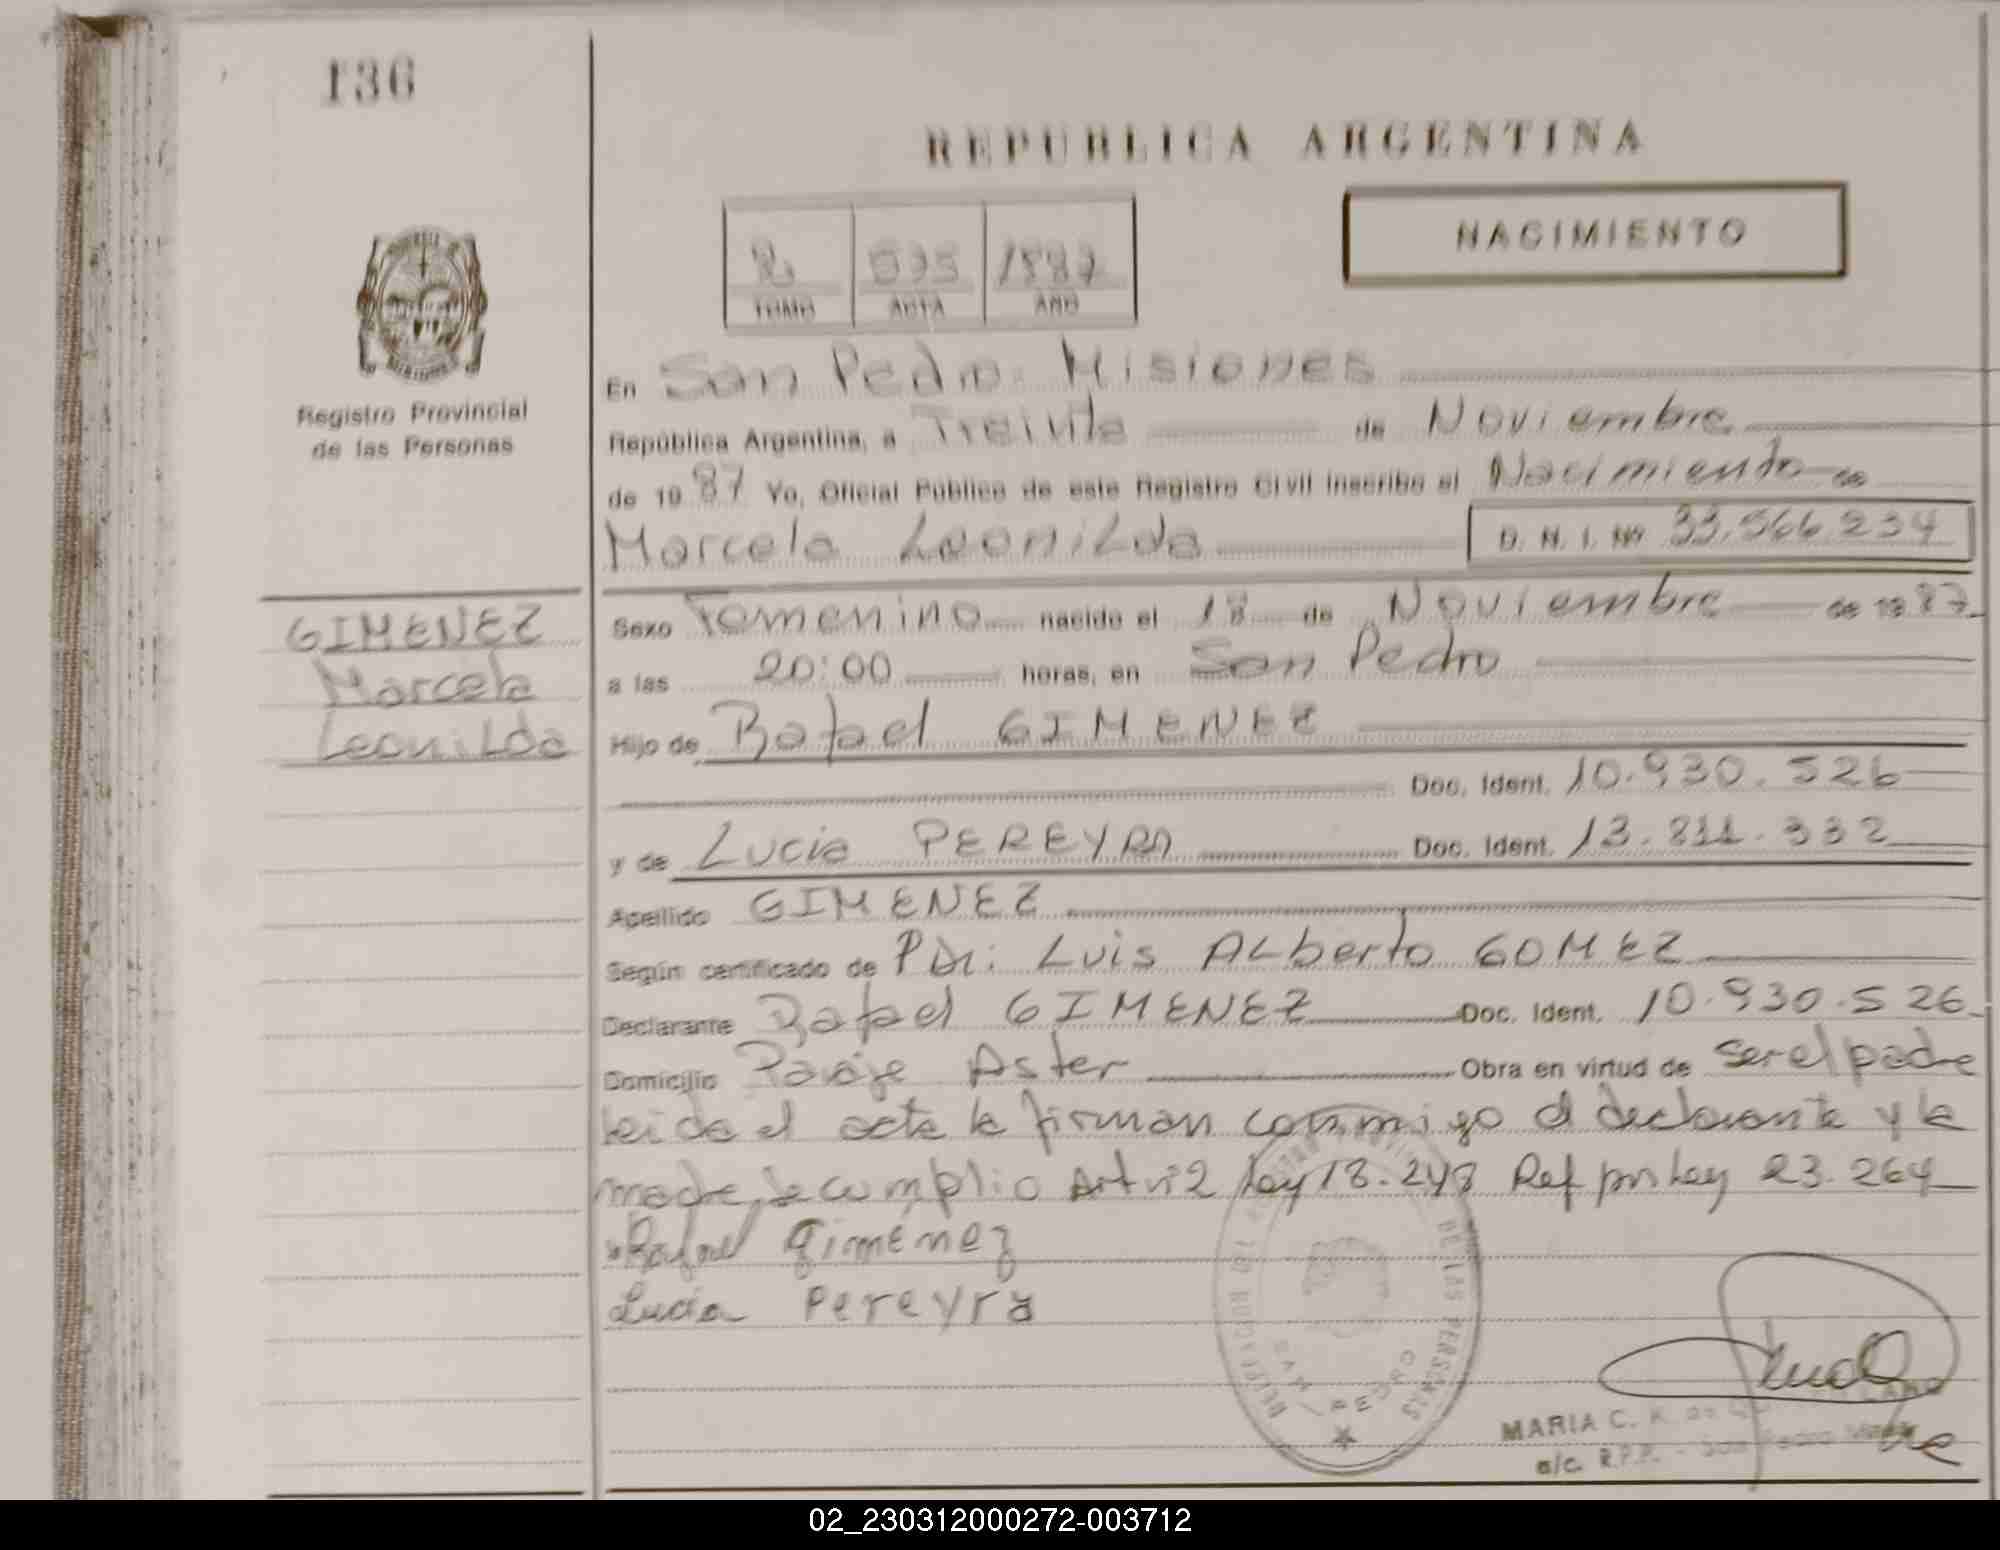 136
REPUBLICA ARGENTINA
NACIMIENTO
2 535 1987
TOMO ACTA AÑO
Registro Provincial
de las Personas
En San Pedro Misiones
República Argentina, a Treinta de Noviembre
de 1987 Yo, Oficial Público de este Registro Civil inscribo el Nacimiento de
Marcela Leonilda D. N. I. Nº 33.566.234
GIMENEZ
Marcela
Leonilda
Sexo Femenino nacido el 18 de Noviembre de 1987
a las 20:00 horas, en San Pedro
Hijo de Rafael GIMENEZ
Doc. Ident. 10.930.526
y de Lucia PEREYRA Doc. Ident. 13.811.332
Apellido GIMENEZ
Según certificado de Luis ALberto GOMEZ
Declarante Rafael GIMENEZ Doc. Ident. 10.930.526
Domicilio Paraje Aster Obra en virtud de ser el padre
leida el acta la firman conmigo el declarante y la
madre, se cumplio Art Nº2 ley 18.248 Ref por Ley 23.264
Rafael Gimenez
Lucia Pereyra
DE LAS PERSONAS
MARIA C.
a/c. R.P.P. - San Pedro Mnes
02_230312000272-003712